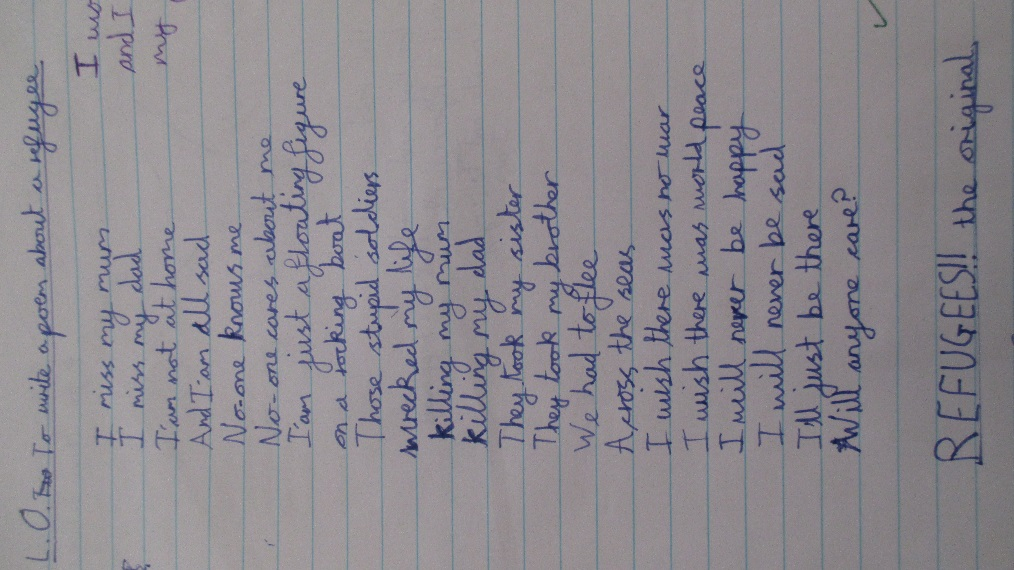 L.O. To write a poem about a refugee.
I miss my mum
I miss my dad
I'am not at home
And I'am all sad
No-one knows me
No-one cares about me
I'am just a floating figure
on a rocking boat
Those stupid soldiers
wrecked my life
killing my mum
killing my dad
They took my sister
They took my brother
We had to flee
Across the seas
I wish there was no war
I wish there was world peace
I will never be happy
I will never be sad
I'll just be there
Will anyone care?
REFUGEES!! the original
I
and I
my